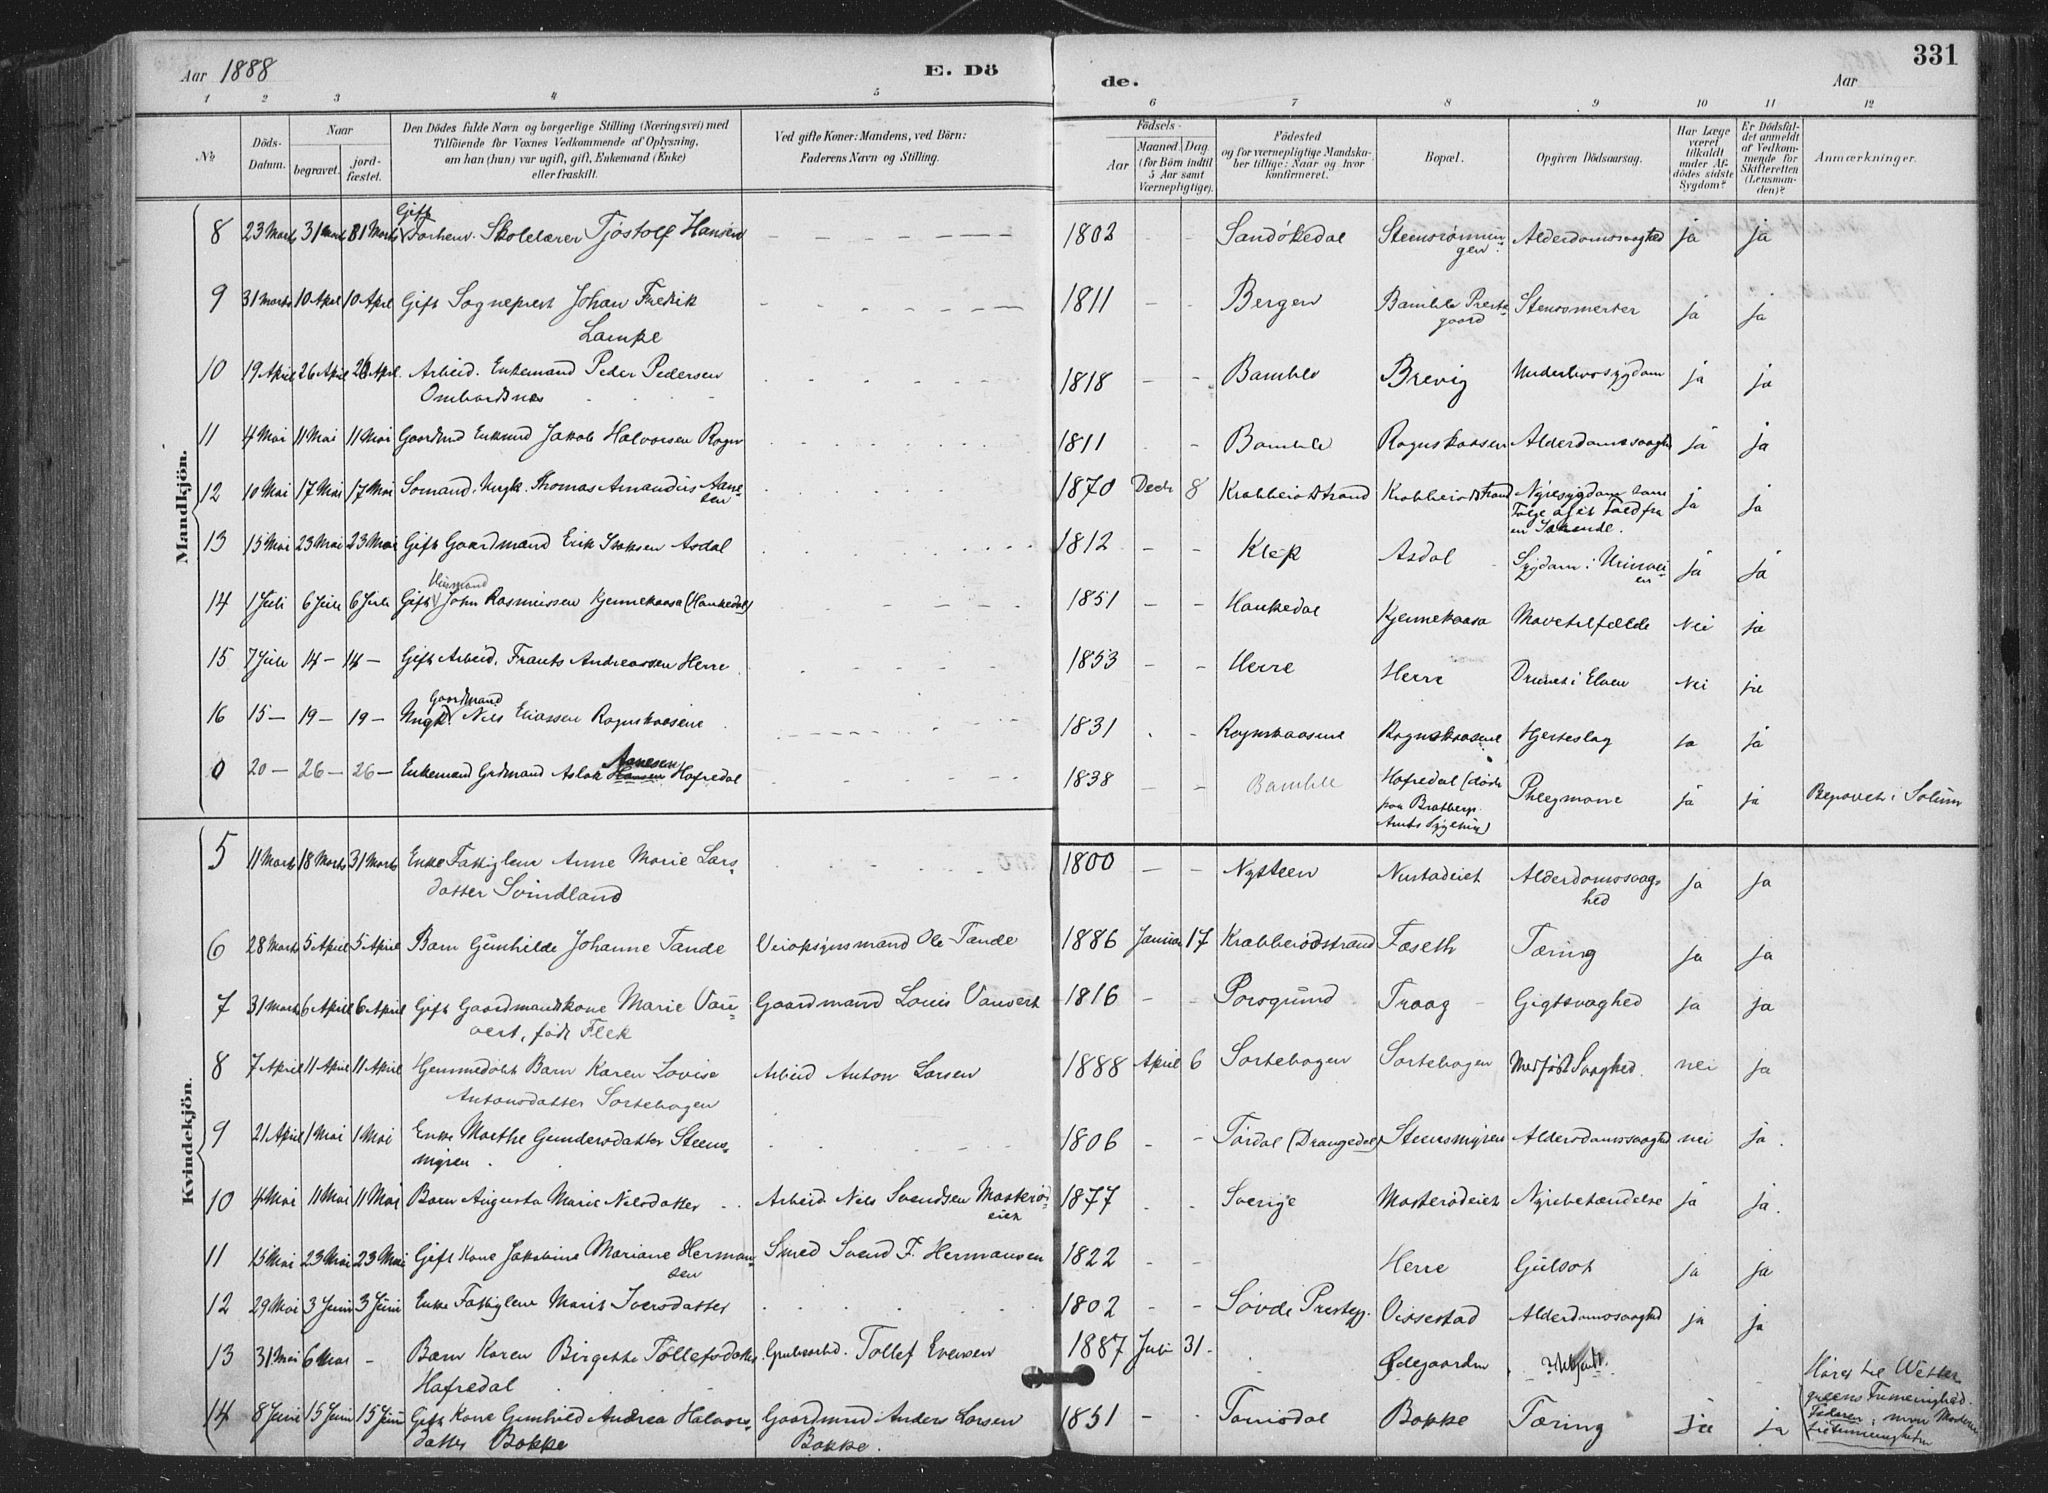 Aar 1888 E. Dö de. Aar 331
1 2 3 4 5 6 7 8 9 10 11 12
No Döds-Datum. Naar begravet. jordfæstet. Den Dödes fulde Navn og borgerlige Stilling (Næringsvei) med Tilföiende for Voxnes Vedkommende af Oplysning, om han (hun) var ugift, gift, Enkemand (Enke) eller fraskilt. Ved gifte Koner: Mandens, ved Börn: Faderens Navn og Stilling. Födsels- Aar Maaned. Dag. (for Börn indtil 5 Aar samt Værnepligtige). Födested og for værnepligtige Mandskaber tillige: Naar og hvor konfirmeret. Bopæl. Opgiven Dödsaarsag. Har Læge været tilkaldt under Afdödes sidste Sygdom? Er Dödsfaldet anmeldt af Vedkommende for Skifteretten (Lensmanden)? Anmærkninger.
Mandkjön.
8 23 Marts 31 Marts 31 Marts Gift Forhenv. Skolelærer Tjöstolf Hansen 1802 - - Sandökedal Steensrönningen Alderdomssvaghed ja ja
9 31 Marts 10 April 10 April Gift Sogneprest Johan Fredrik 1811 - - Bergen Bamble Prestegaard Steensmerter ja ja
Lampe
10 19 April 26 April 26 April Arbeid. Enkemand Peder Pedersen 1818 - - Bamble Brevig Underlivssygdom ja ja
Ombordsnes
11 4 Mai 11 Mai 11 Mai Gaardmd Enkemd Jakob Halvorsen Rogn 1811 Bamble Rognskaasen Alderdomssvaghed ja ja
12 10 Mai 17 Mai 17 Mai Sömand. Ungk. Thomas Amandus Aanesen 1870 Decb 8 Krabberödstrand Krabberödstrand Nyresygdom som Følge af et Fald fra en ja ja
13 15 Mai 23 Mai 23 Mai Gift Gaardmand Erik Isaksen Asdal 1812 - - Klep Asdal Sygdom i Urinveien ja ja
14 1 Juli 6 Juli 6 Juli Gift Huusmand John Rasmussen Kjennekaasa (Hankedal) 1851 - - Hankedal Kjennekaasa Mavetilfælde Nei ja
15 7 Juli 14 - 14 - Gift Arbeid. Frants Andreassen Herre 1853 - - Herre Herre Druknet i Elven Nei ja
16 15 - 19 - 19 - Ungk. Gaardmand Nils Eliassen Rognskaasene 1831 - Rognskaasene Rognskaasene Hjerteslag ja ja
0 20 - 26 - 26 - Enkemand Grdmand Aslak Hansen Aanesen Hafredal 1838 - - Bamble Hafredal (døde paa Bratsberg Amts Sygehus) Phlegmone ja ja Begravet i Solum
Kvindekjön.
5 11 Marts 18 Marts 31 Marts Enke Fattiglem Anne Marie Lars- 1800 - - Nysteen Nustadeiet Alderdomssvaghed ja ja
datter Svindland
6 28 Marts 5 April 5 April Barn Gunhilde Johanne Tande Veiopsynsmand Ole Tande 1886 Januar 17 Krabberödstrand Fæseth Tæring ja ja
7 31 Marts 6 April 6 April Gift Gaardmandskone Marie Vau- Gaardmand Louis Vauvert 1816 - - Porsgrund Traag Gigtsvaghed ja ja
vert, född Flek
8 7 April 11 April 11 April Hjemmedøbt Barn Karen Lovise Arbeid Anton Larsen 1888 April 6 Sortebogen Sortebogen Medfødt Svaghed nei ja
Antonsdatter Sortebogen
9 21 April 1 Mai 1 Mai Enke Marthe Gundersdatter Steens- 1806 - - Tørdal (Drangedal) Steensmyren Alderdomssvaghed nei ja.
myren
10 4 Mai 11 Mai 11 Mai Barn Augusta Marie Nilsdatter Arbeid Nils Svendsen Masterödeiet 1877 - - Sverige Masterödeiet Nyrebetændelse ja ja.
11 15 Mai 23 Mai 23 Mai Gift Kone Jakobine Mariane Hermansen Smed Svend F. Hermansen 1822 - - Herre Gulsot ja ja
12 29 Mai 3 Juni 3 Juni Enke Fattiglem Marit Iversdatter 1802 - - Søvde Prestegj. Vissestad Alderdomssvaghed ja ja
13 31 Mai 6 Mai - Barn Karen Birgitte Tollefsdatter Grubearbd. Tollef Evensen 1887 Juli 31 Ødegaarden Hører til
Hafredal
14 8 Juni 15 Juni 15 Juni Gift Kone Gunhild Andrea Halvors- Gaardmand Anders Larsen 1851 - - Tørrisdal Bakke Tæring ja ja
datter Bakke Bakke.